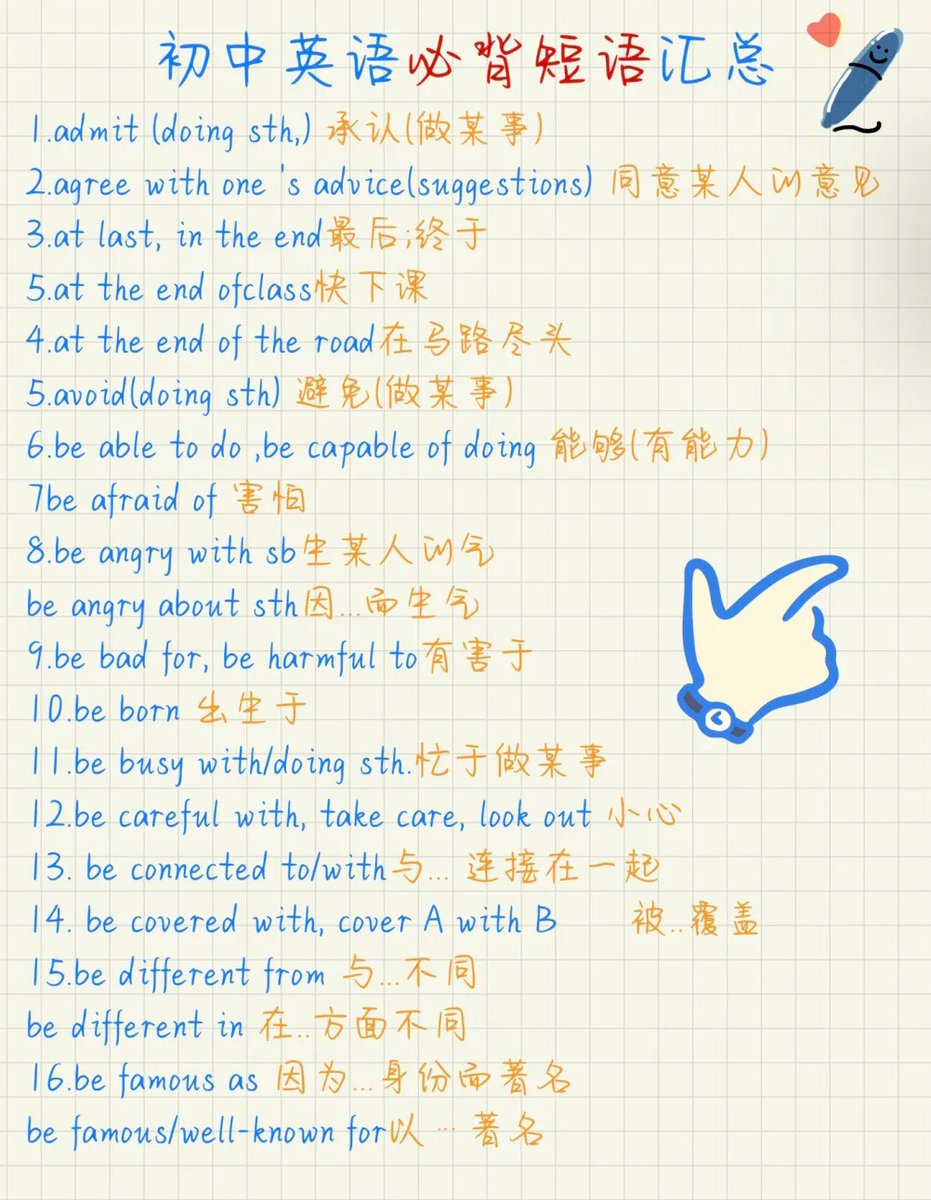 初中英语必背短语汇总
1.admit (doing sth,) 承认(做某事)
2.agree with one 's advice(suggestions) 同意某人的意见
3.at last, in the end最后;终于
5.at the end ofclass快下课
4.at the end of the road在马路尽头
5.avoid(doing sth) 避免(做某事)
6.be able to do ,be capable of doing 能够(有能力)
7be afraid of 害怕
8.be angry with sb生某人的气
be angry about sth因...而生气
9.be bad for, be harmful to有害于
10.be born 出生于
11.be busy with/doing sth.忙于做某事
12.be careful with, take care, look out 小心
13. be connected to/with与... 连接在一起
14. be covered with, cover A with B 被..覆盖
15.be different from 与...不同
be different in 在..方面不同
16.be famous as 因为...身份而著名
be famous/well-known for以 ... 著名